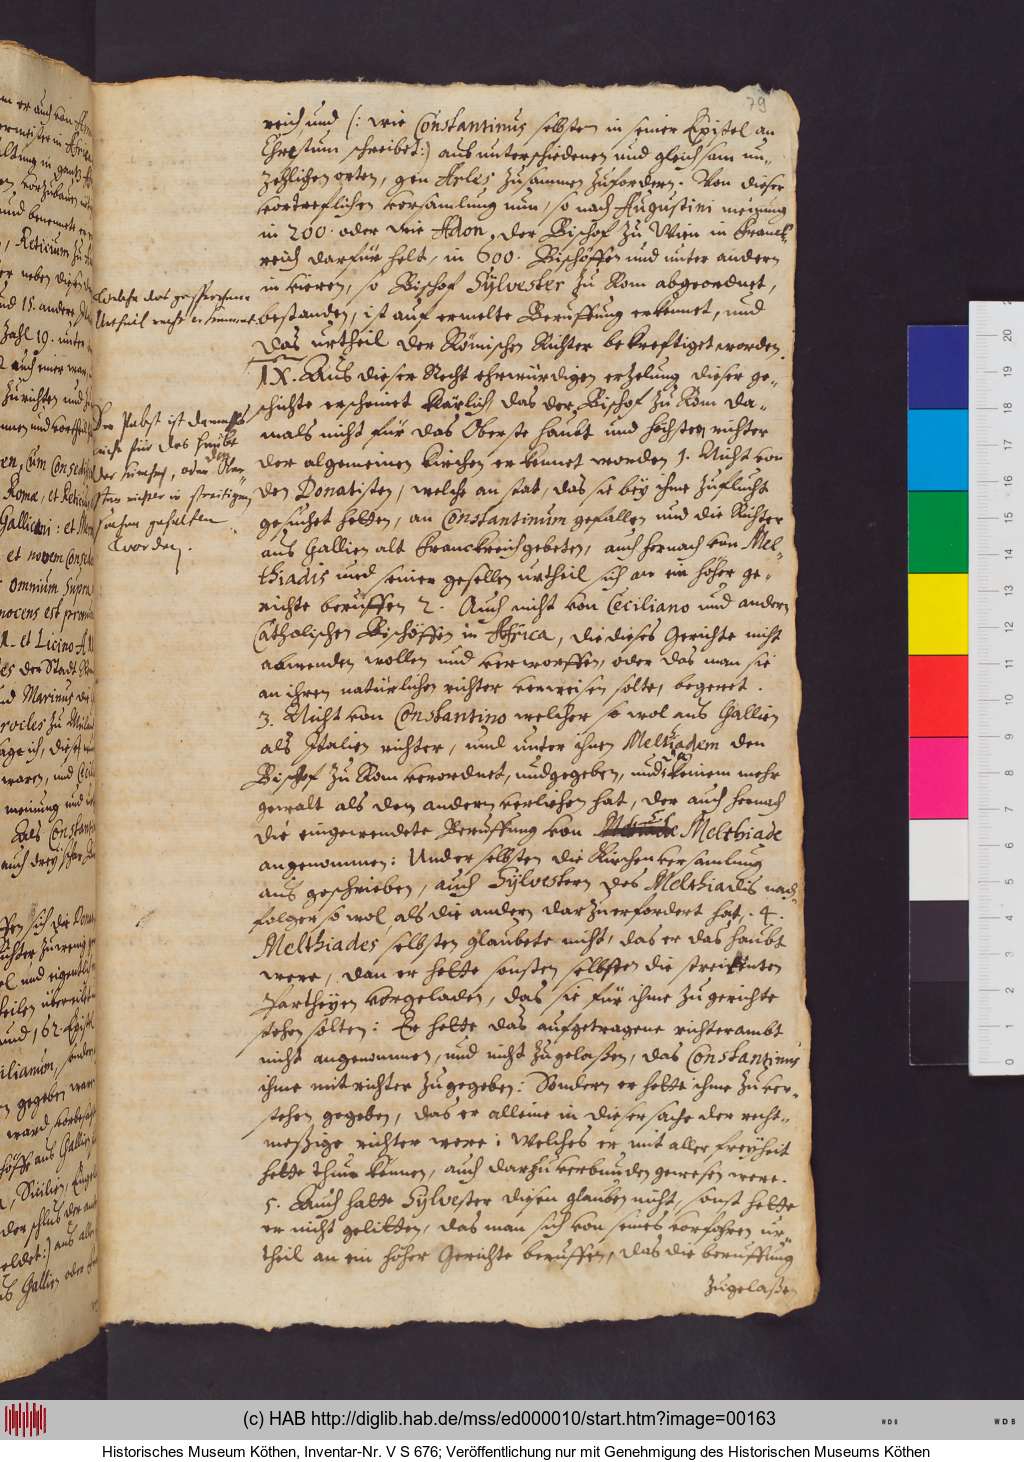 79
reich und (: wie Constantinus selbsten in seiner Epistel an
Chrestum schreibet:) aus unterschiedenen und gleichsam un-
zehlichen orten, gen Arles zusammen zufordern. Von dieser
vortreflichen versamlung nun, so nach Augustini meinung
in 200. oder wie Adon, der Bischof zu Wien in Franck-
reich darfür helt, in 600. Bischöffen und unter andern
in vieren, so Bischof Sylvester zu Rom abgeordnet,
bestanden, ist auf ermelte Beruffung erkennet, und
das urtheil der Römischen Richter bekreftiget worden.
IX. Aus dieser Recht ehrwürdigen erzelung dieser ge-
schichte erscheinet klärlich das der Bischof zu Rom da-
mals nicht für das Oberste haubt und höchsten richter
der algemeinen kirchen erkennet worden 1. Nicht von
den Donatisten, welche an stat, das sie bey ihme zuflucht
gesuchet hetten, an Constantinum gefallen und die Richter
aus Gallien alt Franckreich gebeten, auch hernach von Mel-
thiadis und seiner gesellen urtheil sich an ein höher ge-
richte beruffen 2. Auch nicht von Ceciliano und andern
Catholischen Bischöffen in Africa, die dieses Gerichte nicht
abwenden wollen und verworffen, oder das man sie
an ihren natürlichen richter verweisen solte, begeret.
3. Nicht von Constantino welcher so wol aus Gallien
als Italien richter, und unter ihnen Meltiadem den
Bischof zu Rom verordnet, und gegeben, und keinem mehr
gewalt als den andern verliehen hat, der auch hernach
die eingewendete Beruffung von Melthiade
angenommen: Und er selbsten die Kirchenversamlung
aus geschrieben, auch Sylvestern des Melthiadis nach-
folger so wol als die andern darzu erfordert hat. 4.
Melthiades selbsten glaubete nicht, das er das haubt
were, dan er hette sonsten selbsten die streitenten
Partheyen vorgeladen, das sie für ihme zu gerichte
stehen solten: Er hette das aufgetragene richterambt
nicht angenommen, und nicht zugelaßen, das Constantinus
ihme mitrichter zugegeben: Sondern er hette ihme zu ver-
stehen gegeben, das er alleine in dieser sache der recht-
messige richter were: Welches er mit aller freyheit
hette thun können, auch darzu verbunden gewesen were.
5. Auch hatte Sylvester diesen glauben nicht, sonst hette
er nicht gelitten, das man sich von seines vorfahren ur-
theil an ein höher Gerichte beruffen, das die beruffung
zugelaßen
Welche das gesprochene
Urtheil recht erkennet.
Der Pabst ist damahls
nicht für das Haubt
der kirchen, oder den
sten richter in streitigen
sachen gehalten
worden.
(c) HAB http://diglib.hab.de/mss/ed000010/start.htm?image=00163
Historisches Museum Köthen, Inventar-Nr. V S 676; Veröffentlichung nur mit Genehmigung des Historischen Museums Köthen